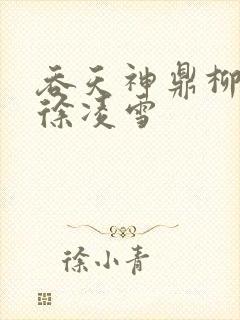 吞天神鼎柳
徐凌雪
徐小青